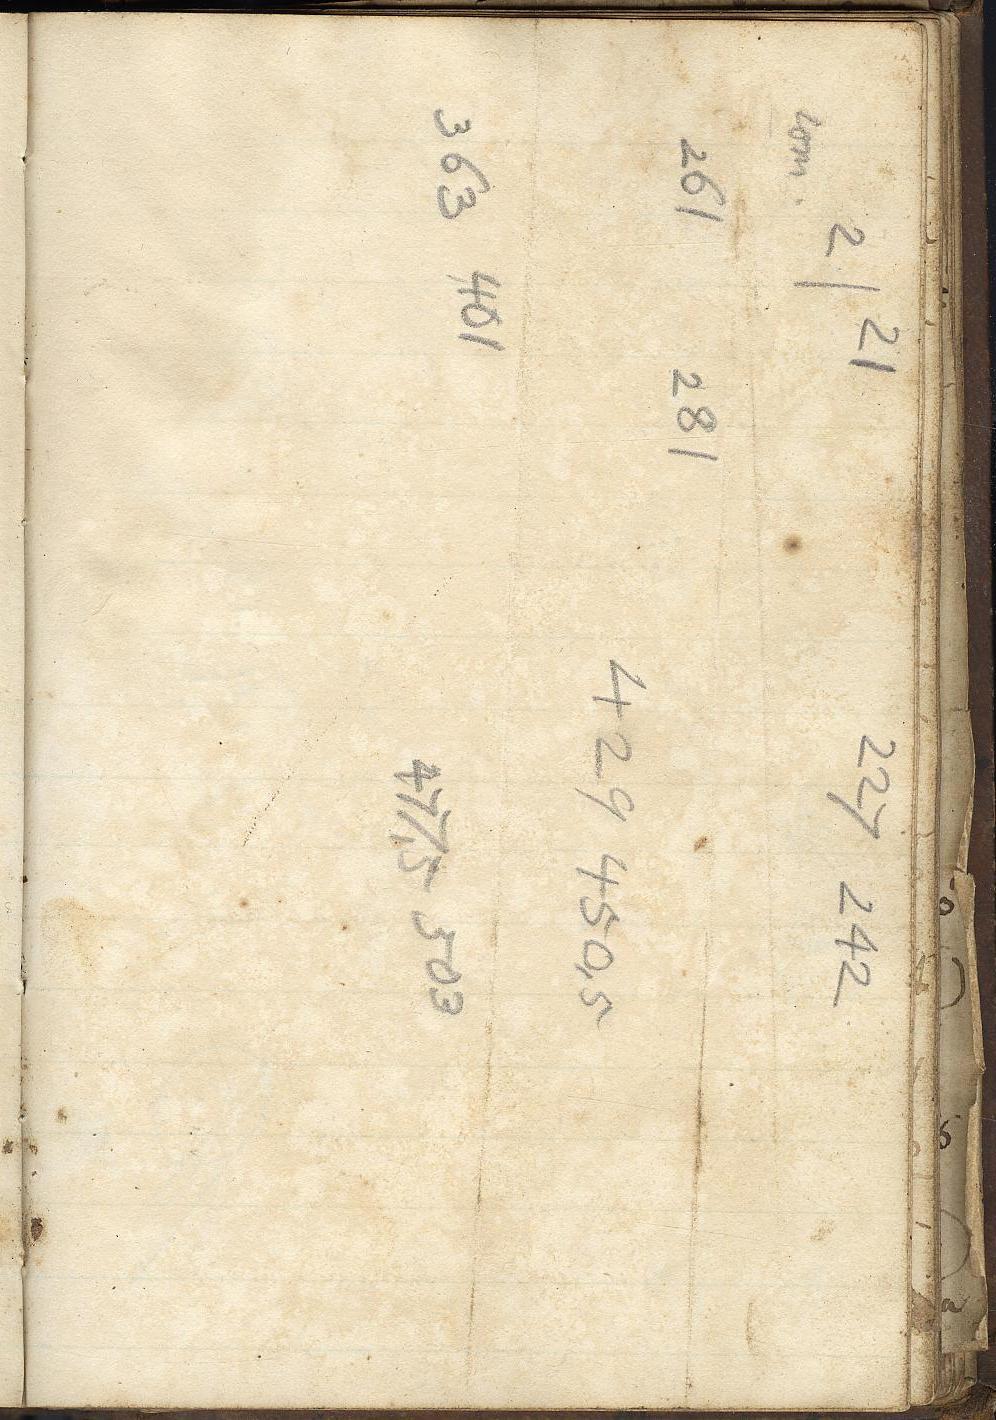 2 | 21 227 242
261 281
429 450,5
363 401
477,5 503